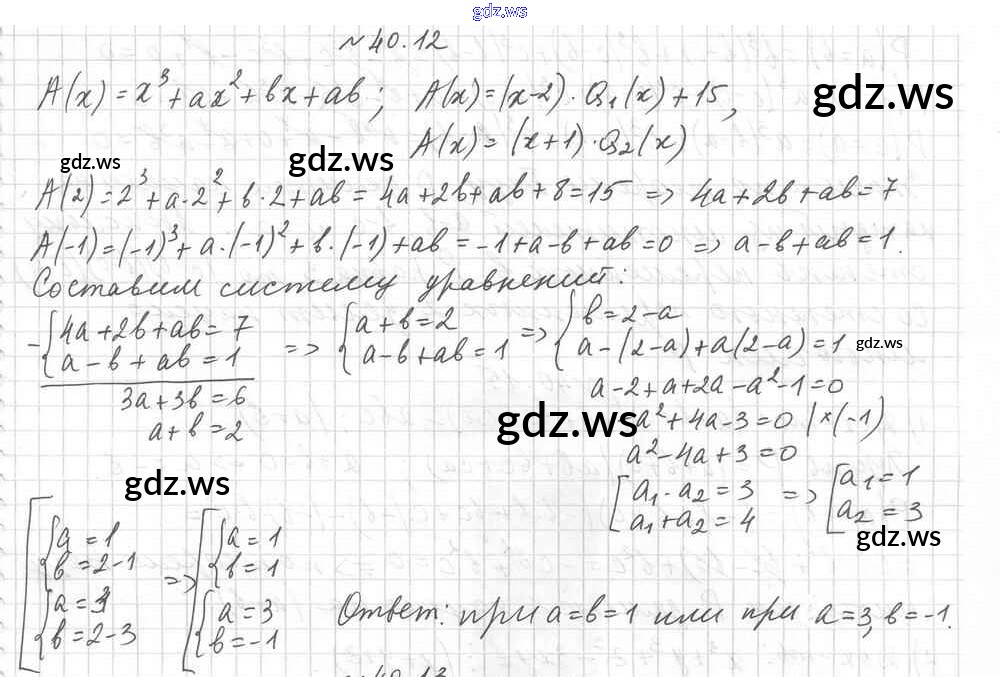 gdz.ws
№40.12
A(x) = x³ + ax² + bx + ab; A(x) = (x-2)·Q₁(x) + 15,
gdz.ws
A(x) = (x+1)·Q₂(x)
gdz.ws gdz.ws
A(2) = 2³ + a·2² + b·2 + ab = 4a + 2b + ab + 8 = 15 => 4a + 2b + ab = 7
A(-1) = (-1)³ + a·(-1)² + b·(-1) + ab = -1 + a - b + ab = 0 => a - b + ab = 1.
Составим систему уравнений:
- { 4a + 2b + ab = 7 => { a + b = 2 => { b = 2 - a
a - b + ab = 1 a - b + ab = 1 a - (2-a) + a(2-a) = 1 gdz.ws
3a + 3b = 6 a - 2 + a + 2a - a² - 1 = 0
a + b = 2 gdz.ws -a² + 4a - 3 = 0 |×(-1)
a² - 4a + 3 = 0
gdz.ws
[ a₁·a₂ = 3 => [ a₁ = 1
a₁ + a₂ = 4 a₂ = 3
gdz.ws
[ { a = 1 => [ { a = 1
b = 2 - 1 b = 1
{ a = 3 { a = 3
b = 2 - 3 b = -1
Ответ: при a = b = 1 или при a = 3, b = -1.
40.13